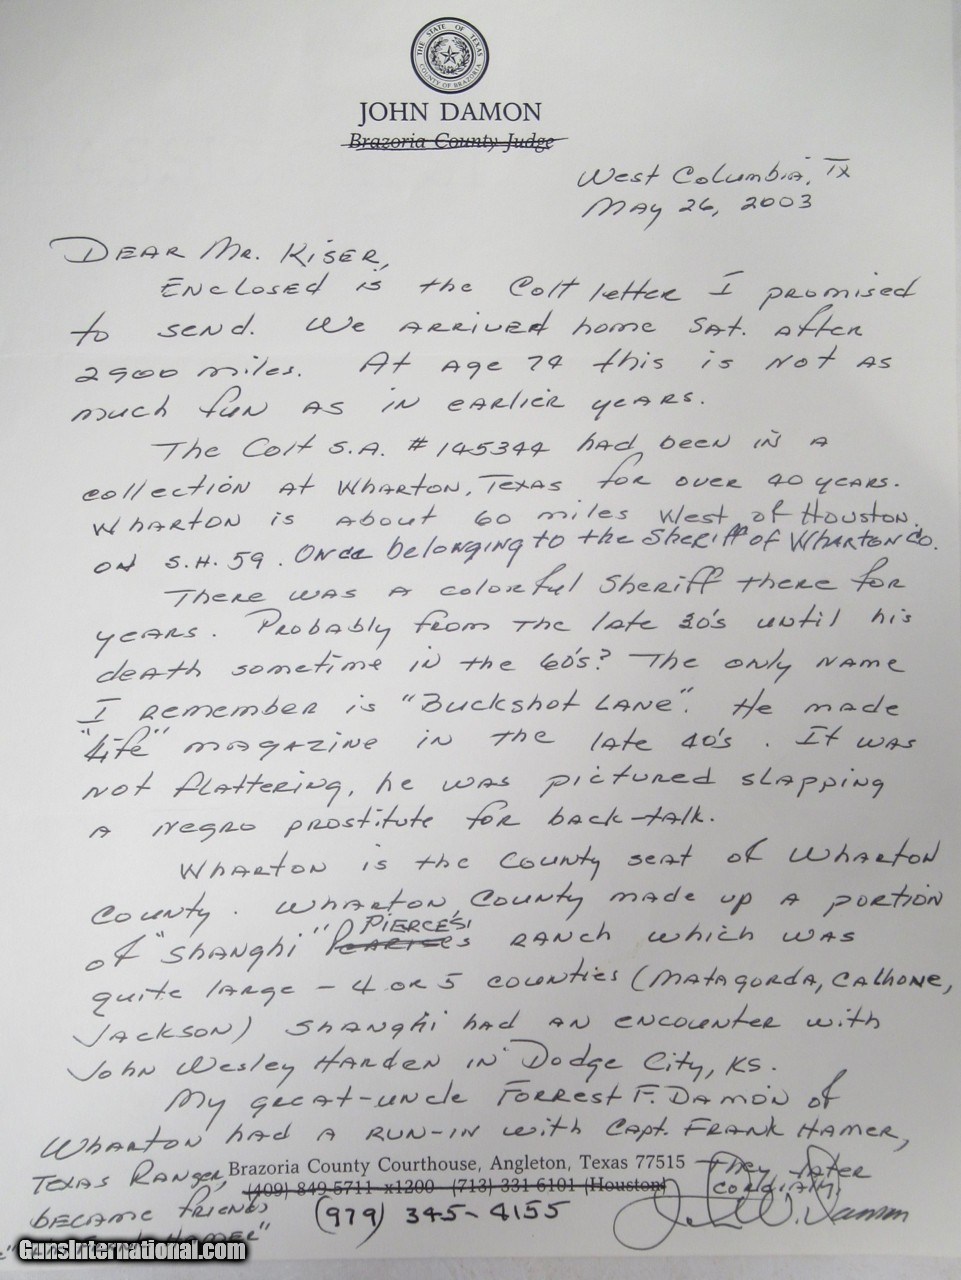 THE STATE OF TEXAS
COUNTY OF BRAZORIA
JOHN DAMON
Brazoria County Judge
West Columbia, TX
May 26, 2003
Dear Mr. Kiser,
Enclosed is the Colt letter I promised
to send. We arrived home Sat. after
2900 miles. At age 74 this is not as
much fun as in earlier years.
The Colt S.A. # 145344 had been in a
collection at Wharton, Texas for over 40 years.
Wharton is about 60 miles West of Houston.
on S.H. 59. Once belonging to the Sheriff of Wharton Co.
There was a colorful Sheriff there for
years. Probably from the late 30's until his
death sometime in the 60's? The only name
I remember is "Buckshot Lane". He made
"Life" magazine in the late 40's. It was
not flattering, he was pictured slapping
a negro prostitute for back-talk.
Wharton is the County seat of Wharton
County. Wharton County made up a portion
PIERCE'S
of "Shanghi" ranch which was
quite large - 4 or 5 counties (Matagorda, Calhone,
Jackson) Shanghi had an encounter with
John Wesley Harden in Dodge City, KS.
My great-uncle Forrest F. Damon of
Wharton had a run-in with Capt. Frank Hamer,
Texas Ranger, They later
became friends
Hamer"
Brazoria County Courthouse, Angleton, Texas 77515
(409) 849-5711 x1200 (713) 331-6101 (Houston)
(979) 345-4155
Cordially,
John W. Damon
GunsInternational.com